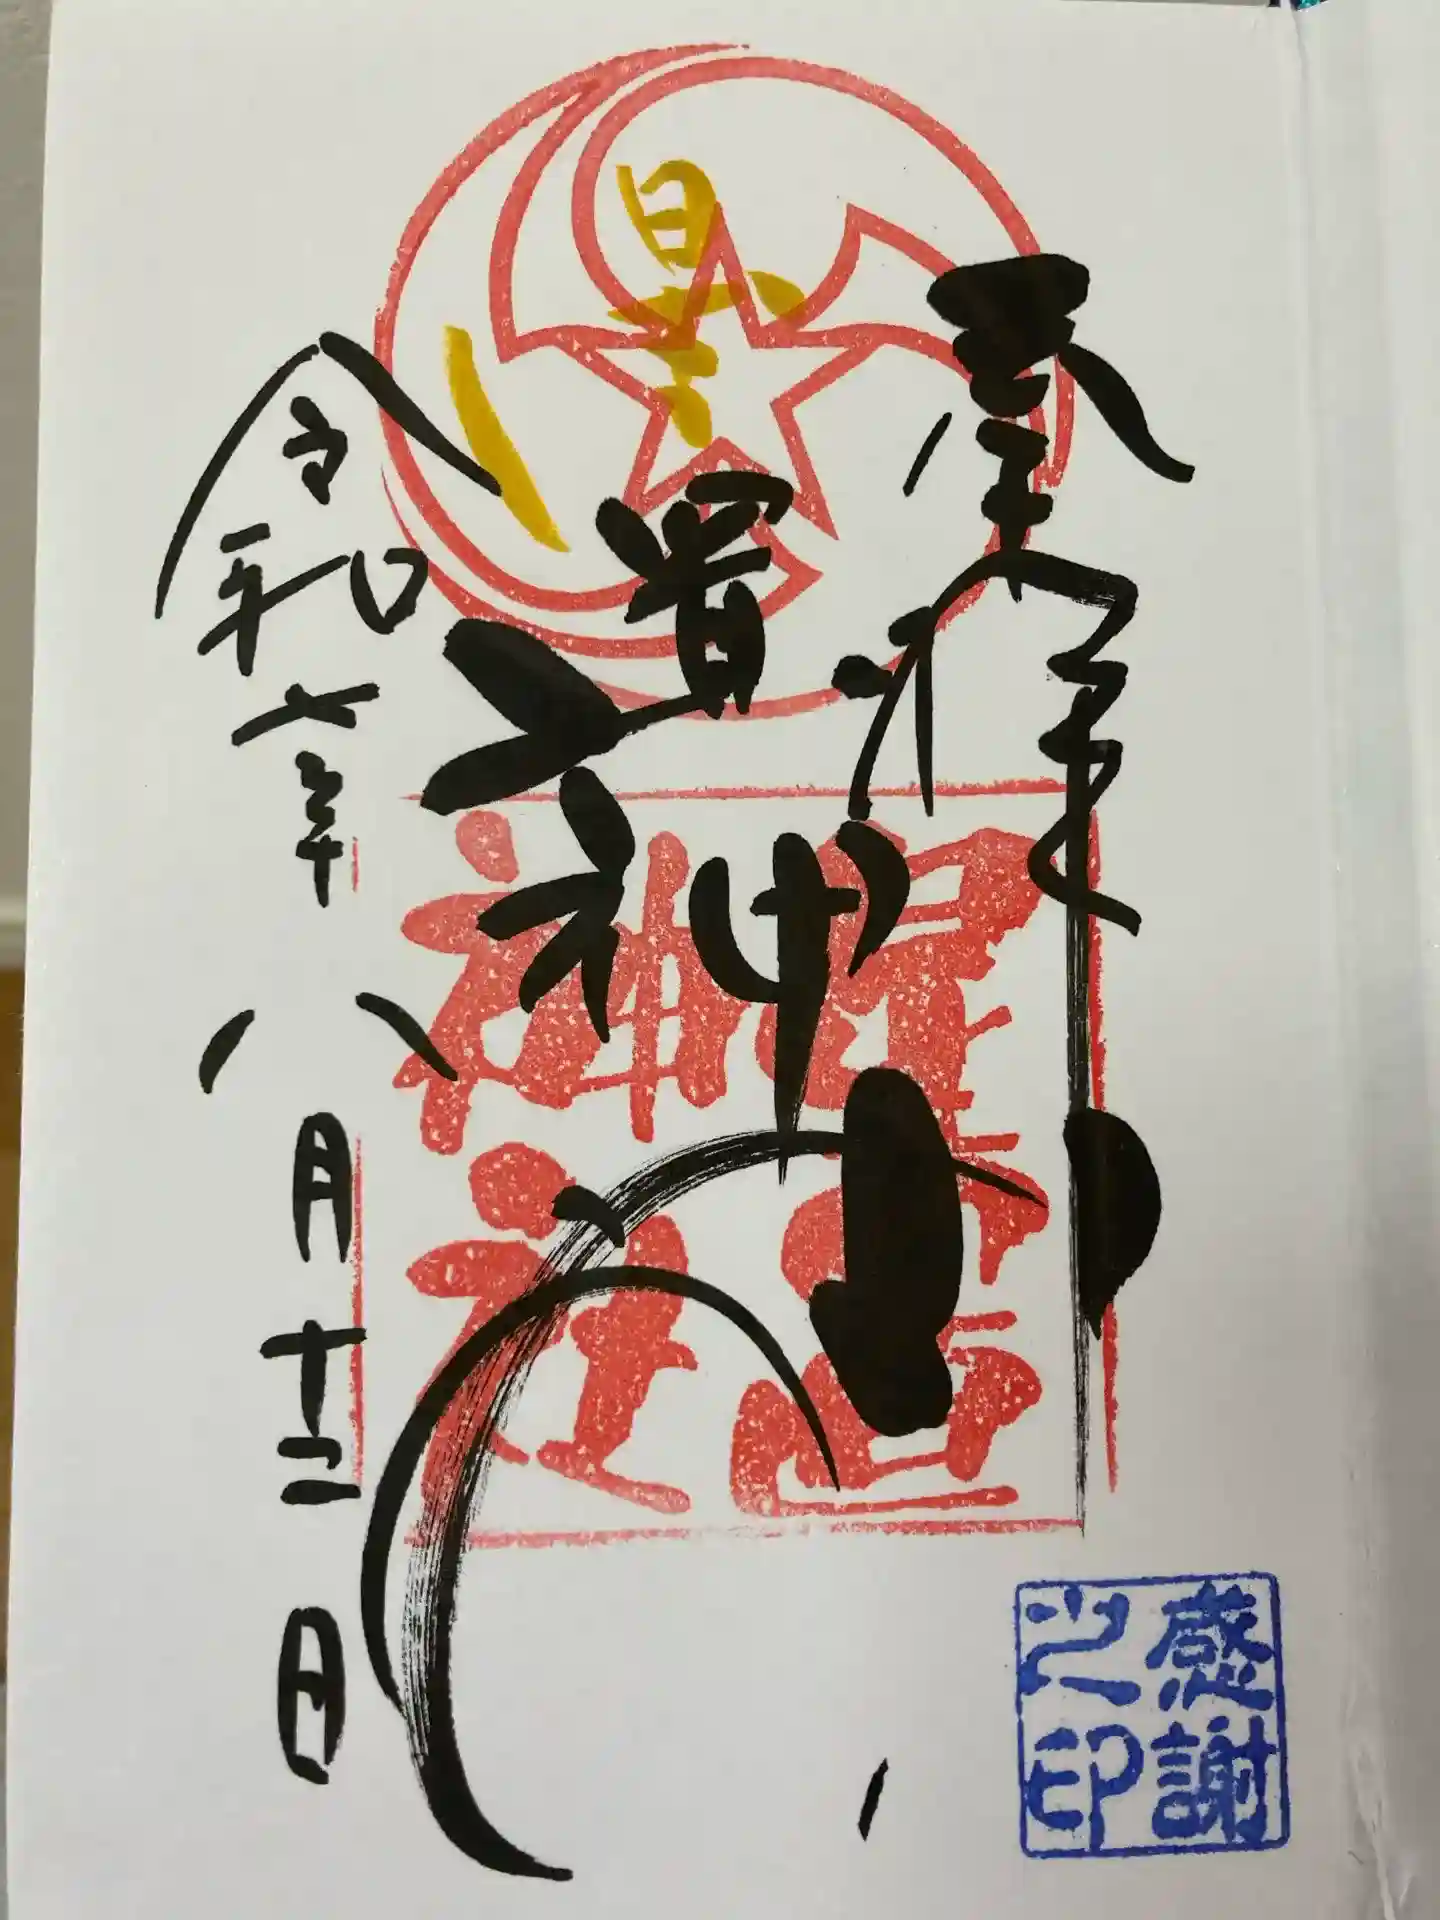 奉拝
星置神社
星置神社
令和七年八月十二日
感謝之印